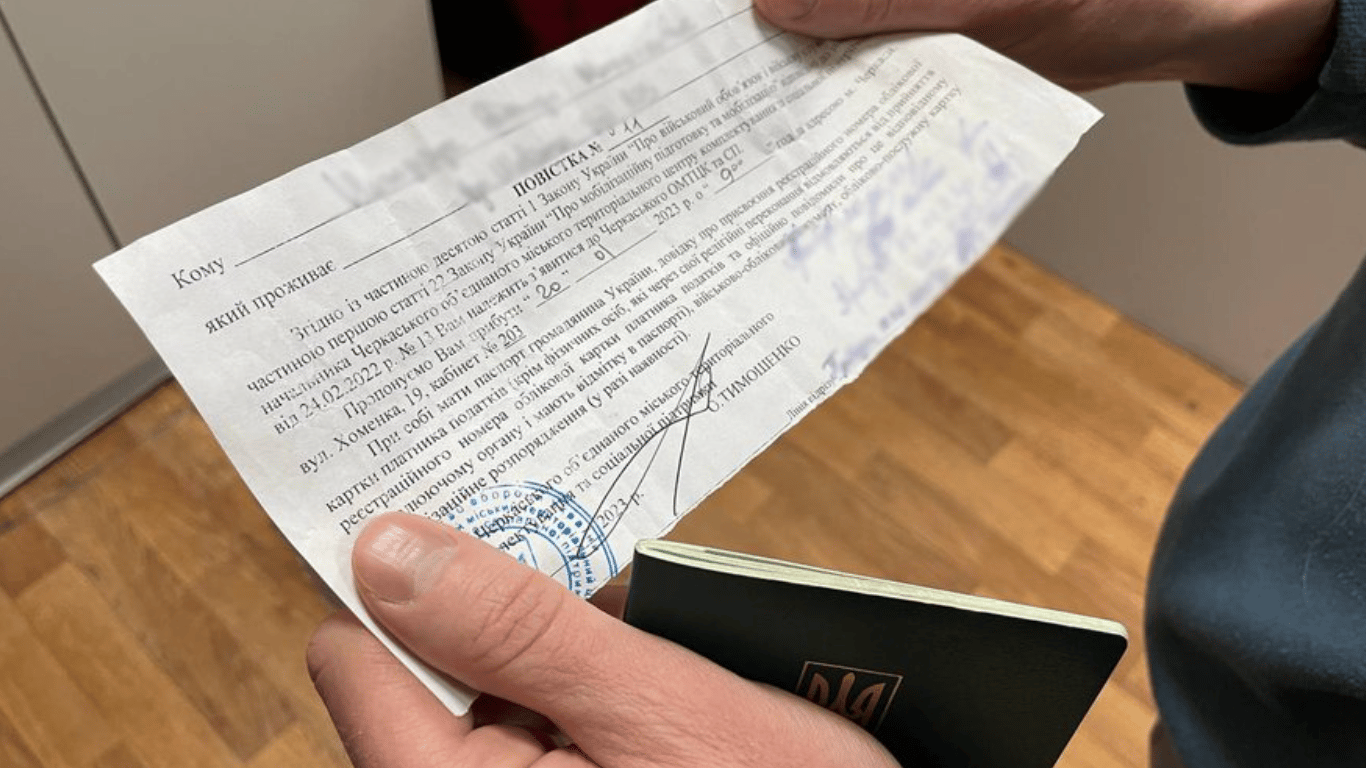 ПОВІСТКА № 11
Кому
який проживає
Згідно із частиною десятою статті 1 Закону України "Про військовий обов'язок і
частиною першою статті 22 Закону України "Про мобілізаційну підготовку та мобілізацію"
начальника Черкаського об'єднаного міського територіального центру комплектування та соціальної
від 24.02.2022 р. № 13 Вам належить з'явитися до Черкаського ОМТЦК та СП.
Пропонуємо Вам прибути "20" 01 2023 р. о "9⁰⁰" год за адресою м. Черкаси,
вул. Хоменка, 19, кабінет № 203
При собі мати паспорт громадянина України, довідку про присвоєння реєстраційного номера облікової
картки платника податків (крім фізичних осіб, які через свої релігійні переконання відмовляються від прийняття
реєстраційного номера облікової картки платника податків та офіційно повідомили про це відповідному
органу і мають відмітку в паспорті), військово-обліковий документ, обліково-послужну картку
розпорядження (у разі наявності)
Черкаського об'єднаного міського територіального
та соціальної підтримки
О.ТИМОШЕНКО
2023 р.
Лінія відрізу